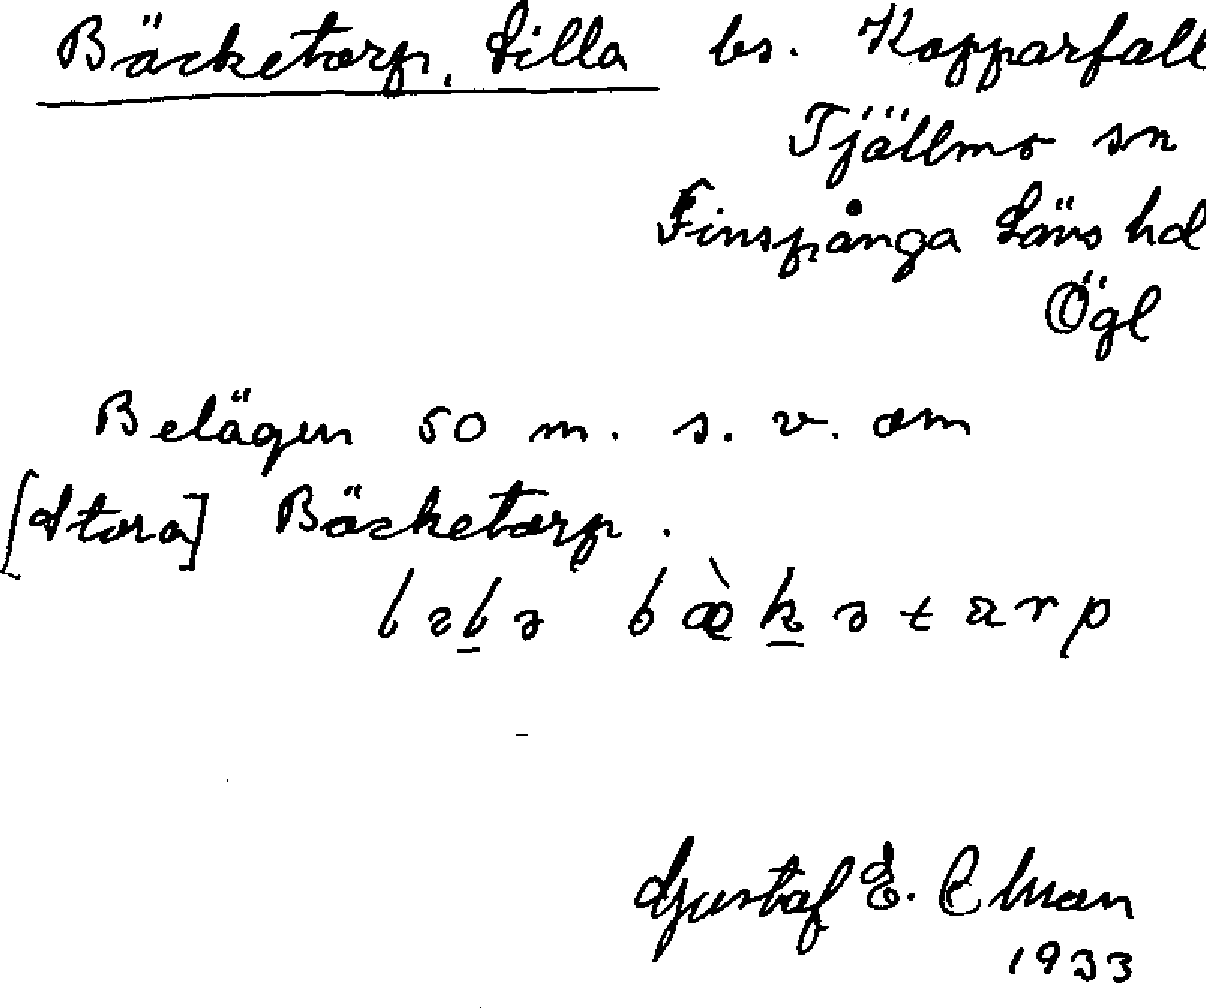 Bäcketorp, Lilla bs. Kopparfall
Tjällmo sn
Finspånga Läns hd
Ögl
Belägen 50 m. s. v. om
[Stora] Bäcketorp.
bæ̀kətarp
Gustaf E. Ekman
1933